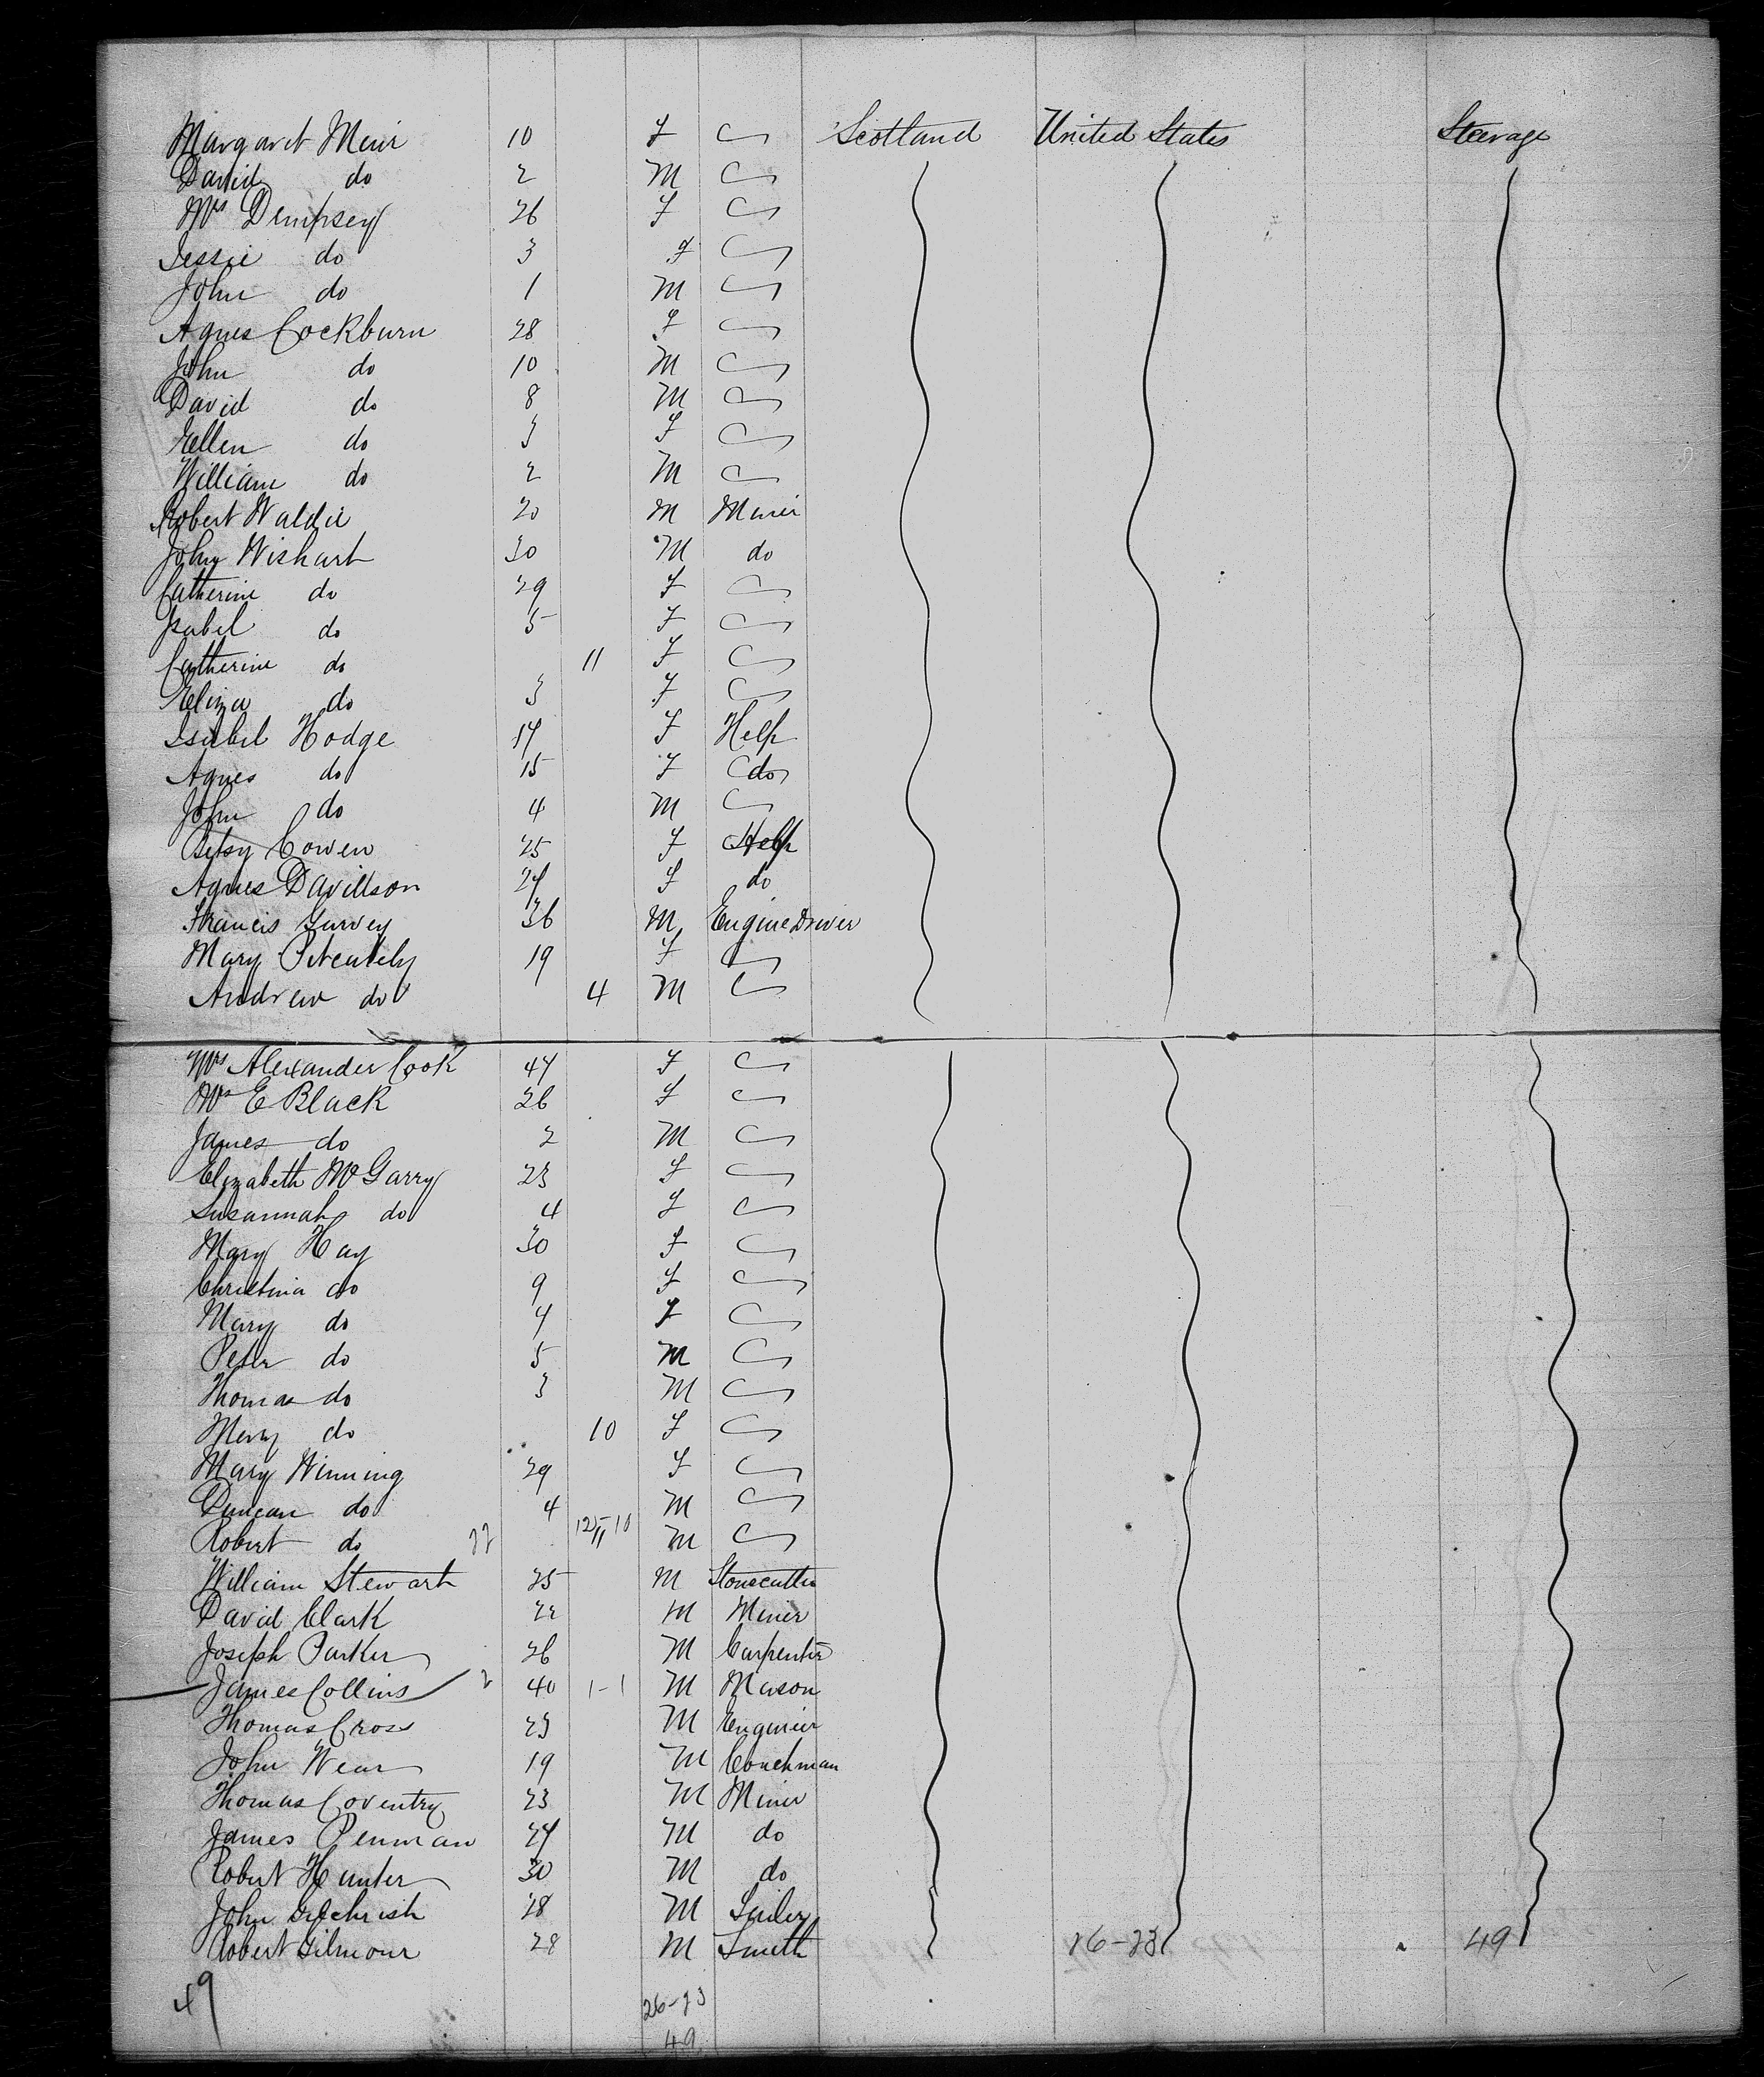 Margaret Muir 10 F Scotland United States Steerage
David do 2 M
Mrs Dempsey 26 F
Jessie do 3 F
John do 1 M
Agnes Cockburn 28 F
John do 10 M
David do 8 M
Ellen do 3 F
William do 2 M
Robert Waldie 20 M Miner
John Wishart 30 M do
Catherine do 29 F
Isabel do 5 F
Catherine do 11 F
Eliza do 3 F
Isabel Hodge 17 F Help
Agnes do 15 F do
John do 4 M
Betsy Cowen 25 F Help
Agnes Davidson 24 F do
Francis Garvey 36 M Engine Driver
Mary 19 F
Andrew do 4 M
Mrs Alexander Cook 47 F
Mrs E Black 26 F
James do 2 M
Elizabeth McGarry 23 F
Susannah do 4 F
Mary Hay 30 F
Christina do 9 F
Mary do 7 F
Peter do 5 M
Thomas do 3 M
Mary do 10 F
Mary Winning 29 F
Duncan do 4 M
Robert do 11 M
William Stewart 25 M Stonecutter
David Clark 22 M Miner
Joseph Parker 26 M Carpenter
James Collins 40 1-1 M Mason
Thomas Cross 23 M Engineer
John Wear 19 M Coachman
Thomas Coventry 23 M Miner
James Penman 24 M do
Robert Hunter 30 M do
John Gilchrist 28 M
Robert Gilmour 28 M Smith 26-23 49
49 26-23
49